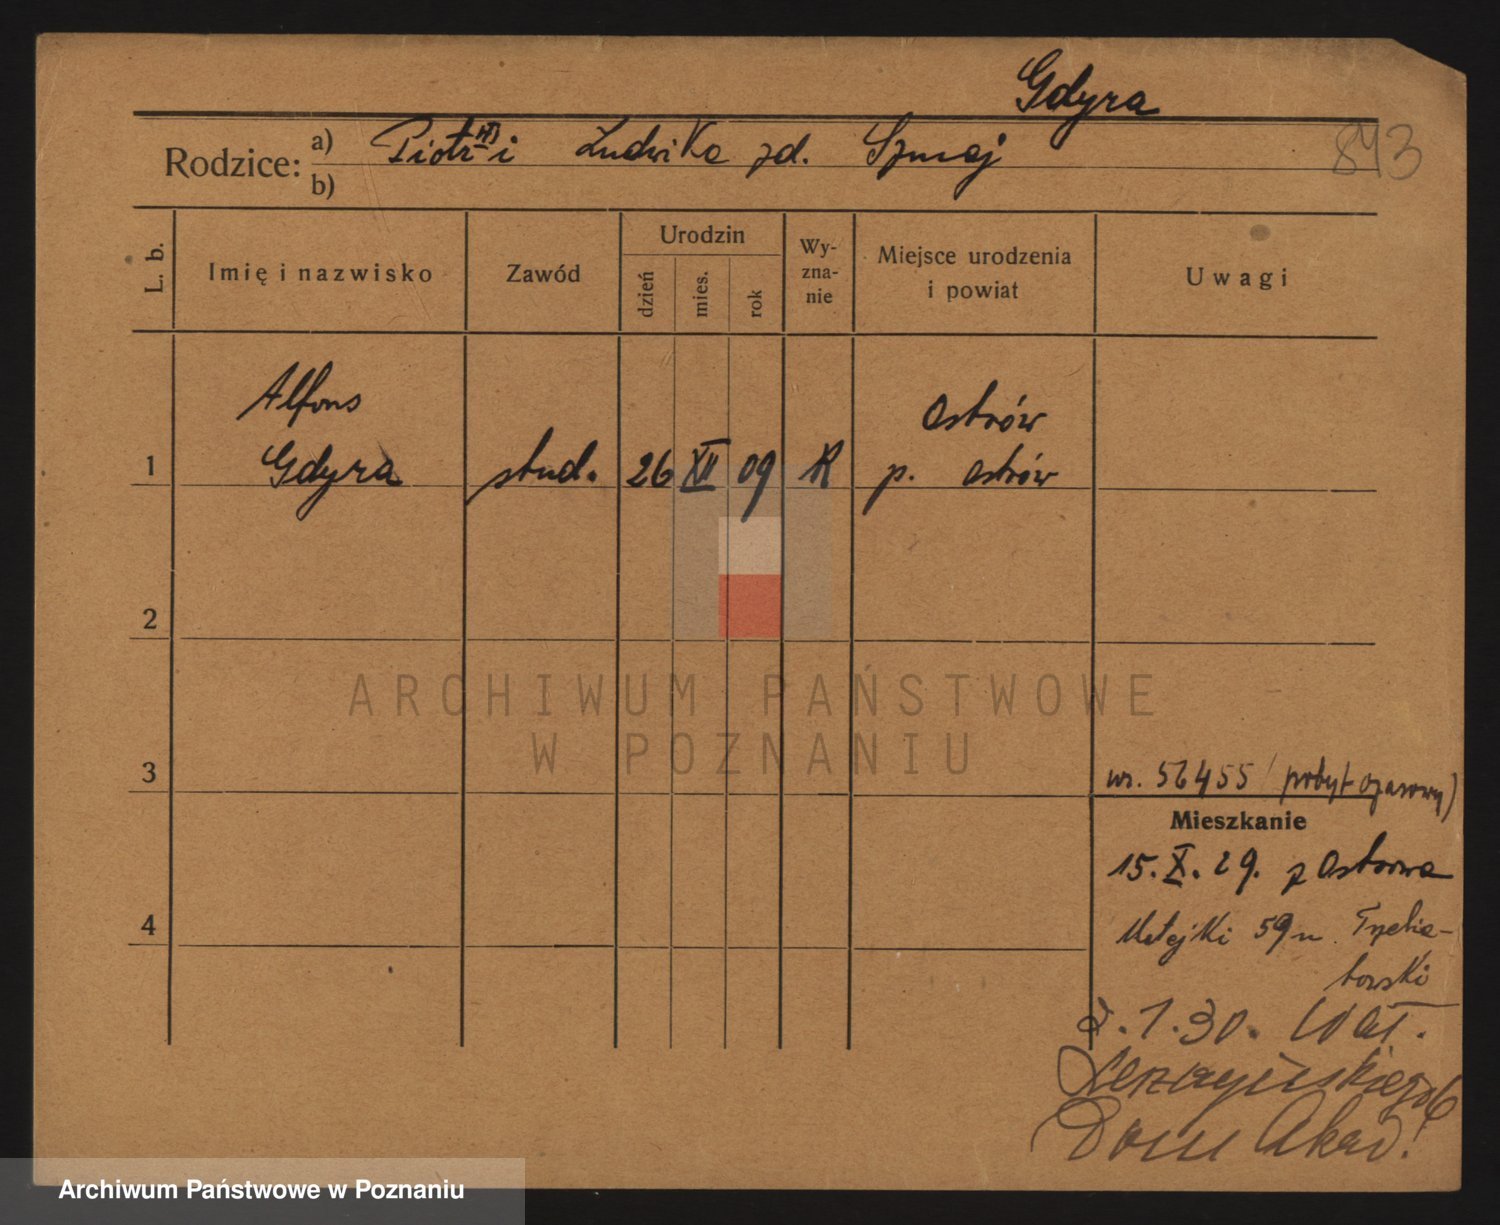 Gdyra
843
Rodzice:
a) Piotr i Ludwika zd. Szmaj
b)
L. b.
Imię i nazwisko
Zawód
Urodzin
dzień
mies.
rok
Wy-
zna-
nie
Miejsce urodzenia
i powiat
Uwagi
Alfons
Ostrów
1 Gdyra stud. 26 XII 09 R p. Ostrów
2
ARCHIWUM PAŃSTWOWE
W POZNANIU
3
nr. 56455 (pobyt czasowy)
Mieszkanie
15.X.29. z Ostrowa
4
Matejki 59 u.
2.1.30. Wał.
Leszczyńskiego 6
Dom Akad.!
Archiwum Państwowe w Poznaniu